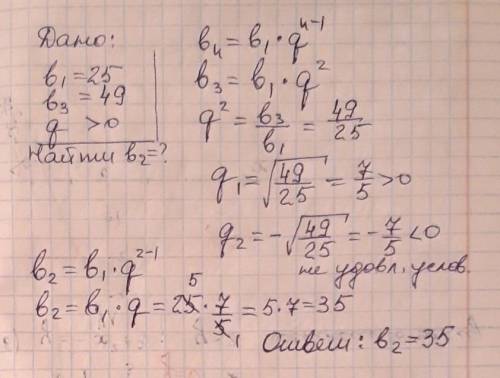 Дано:
b₁ = 25
b₃ = 49
q > 0
Найти b₂ = ?
bₙ = b₁ · qⁿ⁻¹
b₃ = b₁ · q²
q² = b₃/b₁ = 49/25
q₁ = √(49/25) = 7/5 > 0
q₂ = -√(49/25) = -7/5 < 0
не удовл. услов.
b₂ = b₁ · q²⁻¹
b₂ = b₁ · q = 25 · 7/5 = 5 · 7 = 35
Ответ: b₂ = 35